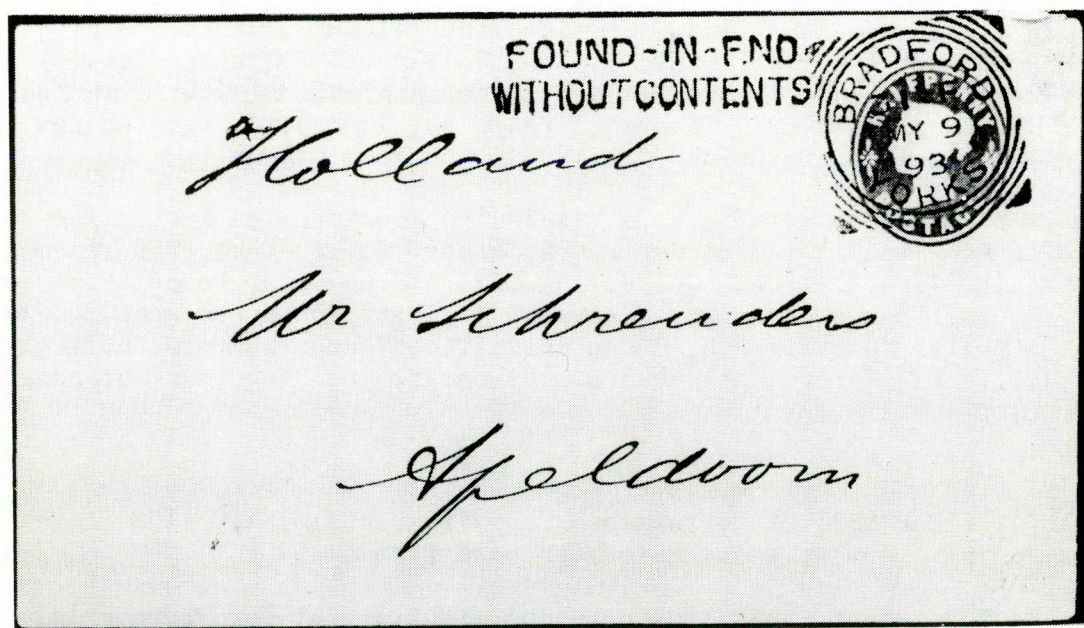 FOUND-IN-F.N.O.
WITHOUT CONTENTS
BRADFORD
MY 9
93
YORKS
Holland
Mr Schreuders
Apeldoorn